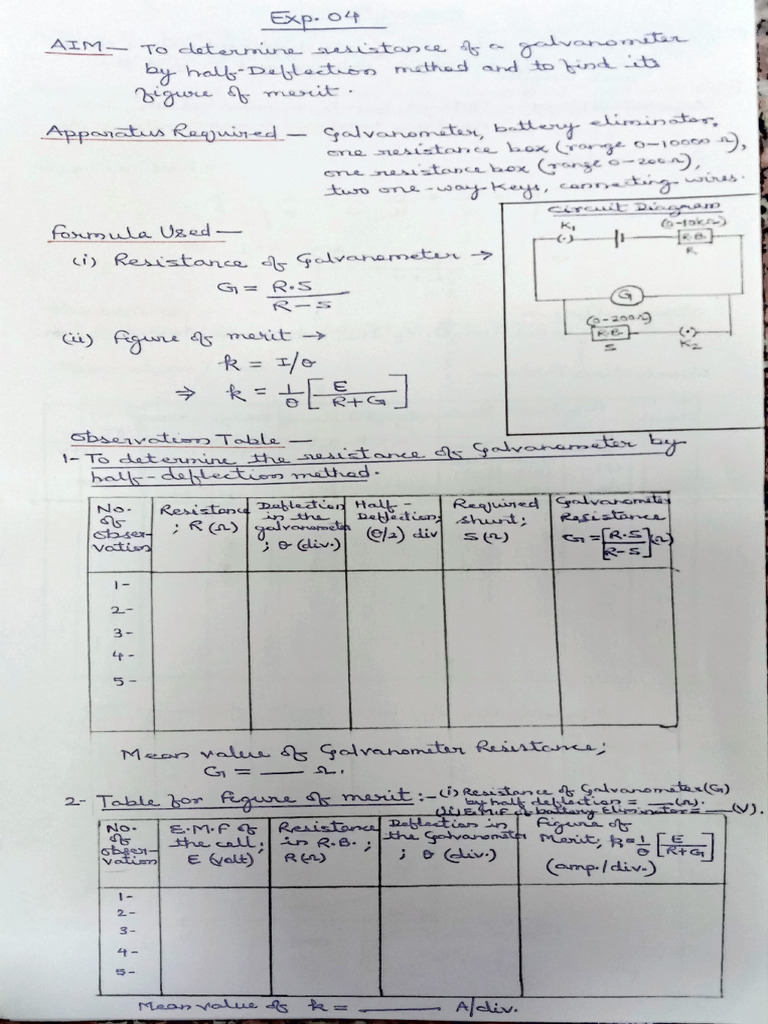 Exp. 04
AIM — To determine resistance of a galvanometer
by half-Deflection method and to find its
figure of merit.
Apparatus Required — Galvanometer, battery eliminator,
one resistance box (range 0-10000 Ω),
one resistance box (range 0-200Ω),
two one-way-keys, connecting wires.
Circuit Diagram
K₁
(0-10kΩ)
(·)
R.B.
R
G
(0-200Ω)
R.B.
(·)
S
K₂
Formula Used —
(i) Resistance of Galvanometer →
G = R.S / R-S
(ii) Figure of merit →
k = I/θ
⇒ k = 1/θ [E / R+G]
Observation Table —
1- To determine the resistance of Galvanometer by
half-deflection method.
No. of obser-vation
Resistance ; R (Ω)
Deflection in the galvanometer ; θ (div.)
Half-Deflection; (θ/2) div
Required shunt; S (Ω)
Galvanometer Resistance G = [R.S / R-S] (Ω)
1-
2-
3-
4-
5-
Mean value of Galvanometer Resistance;
G = ___ Ω.
2- Table for figure of merit :- (i) Resistance of Galvanometer (G)
by half deflection = ___ (Ω).
(ii) E.M.F of battery Eliminator = ___ (V).
No. of obser-vation
E.M.F of the cell; E (volt)
Resistance in R.B. ; R (Ω)
Deflection in the Galvanometer ; θ (div.)
Figure of Merit; k = 1/θ [E / R+G] (amp./div.)
1-
2-
3-
4-
5-
Mean value of k = ______ A/div.